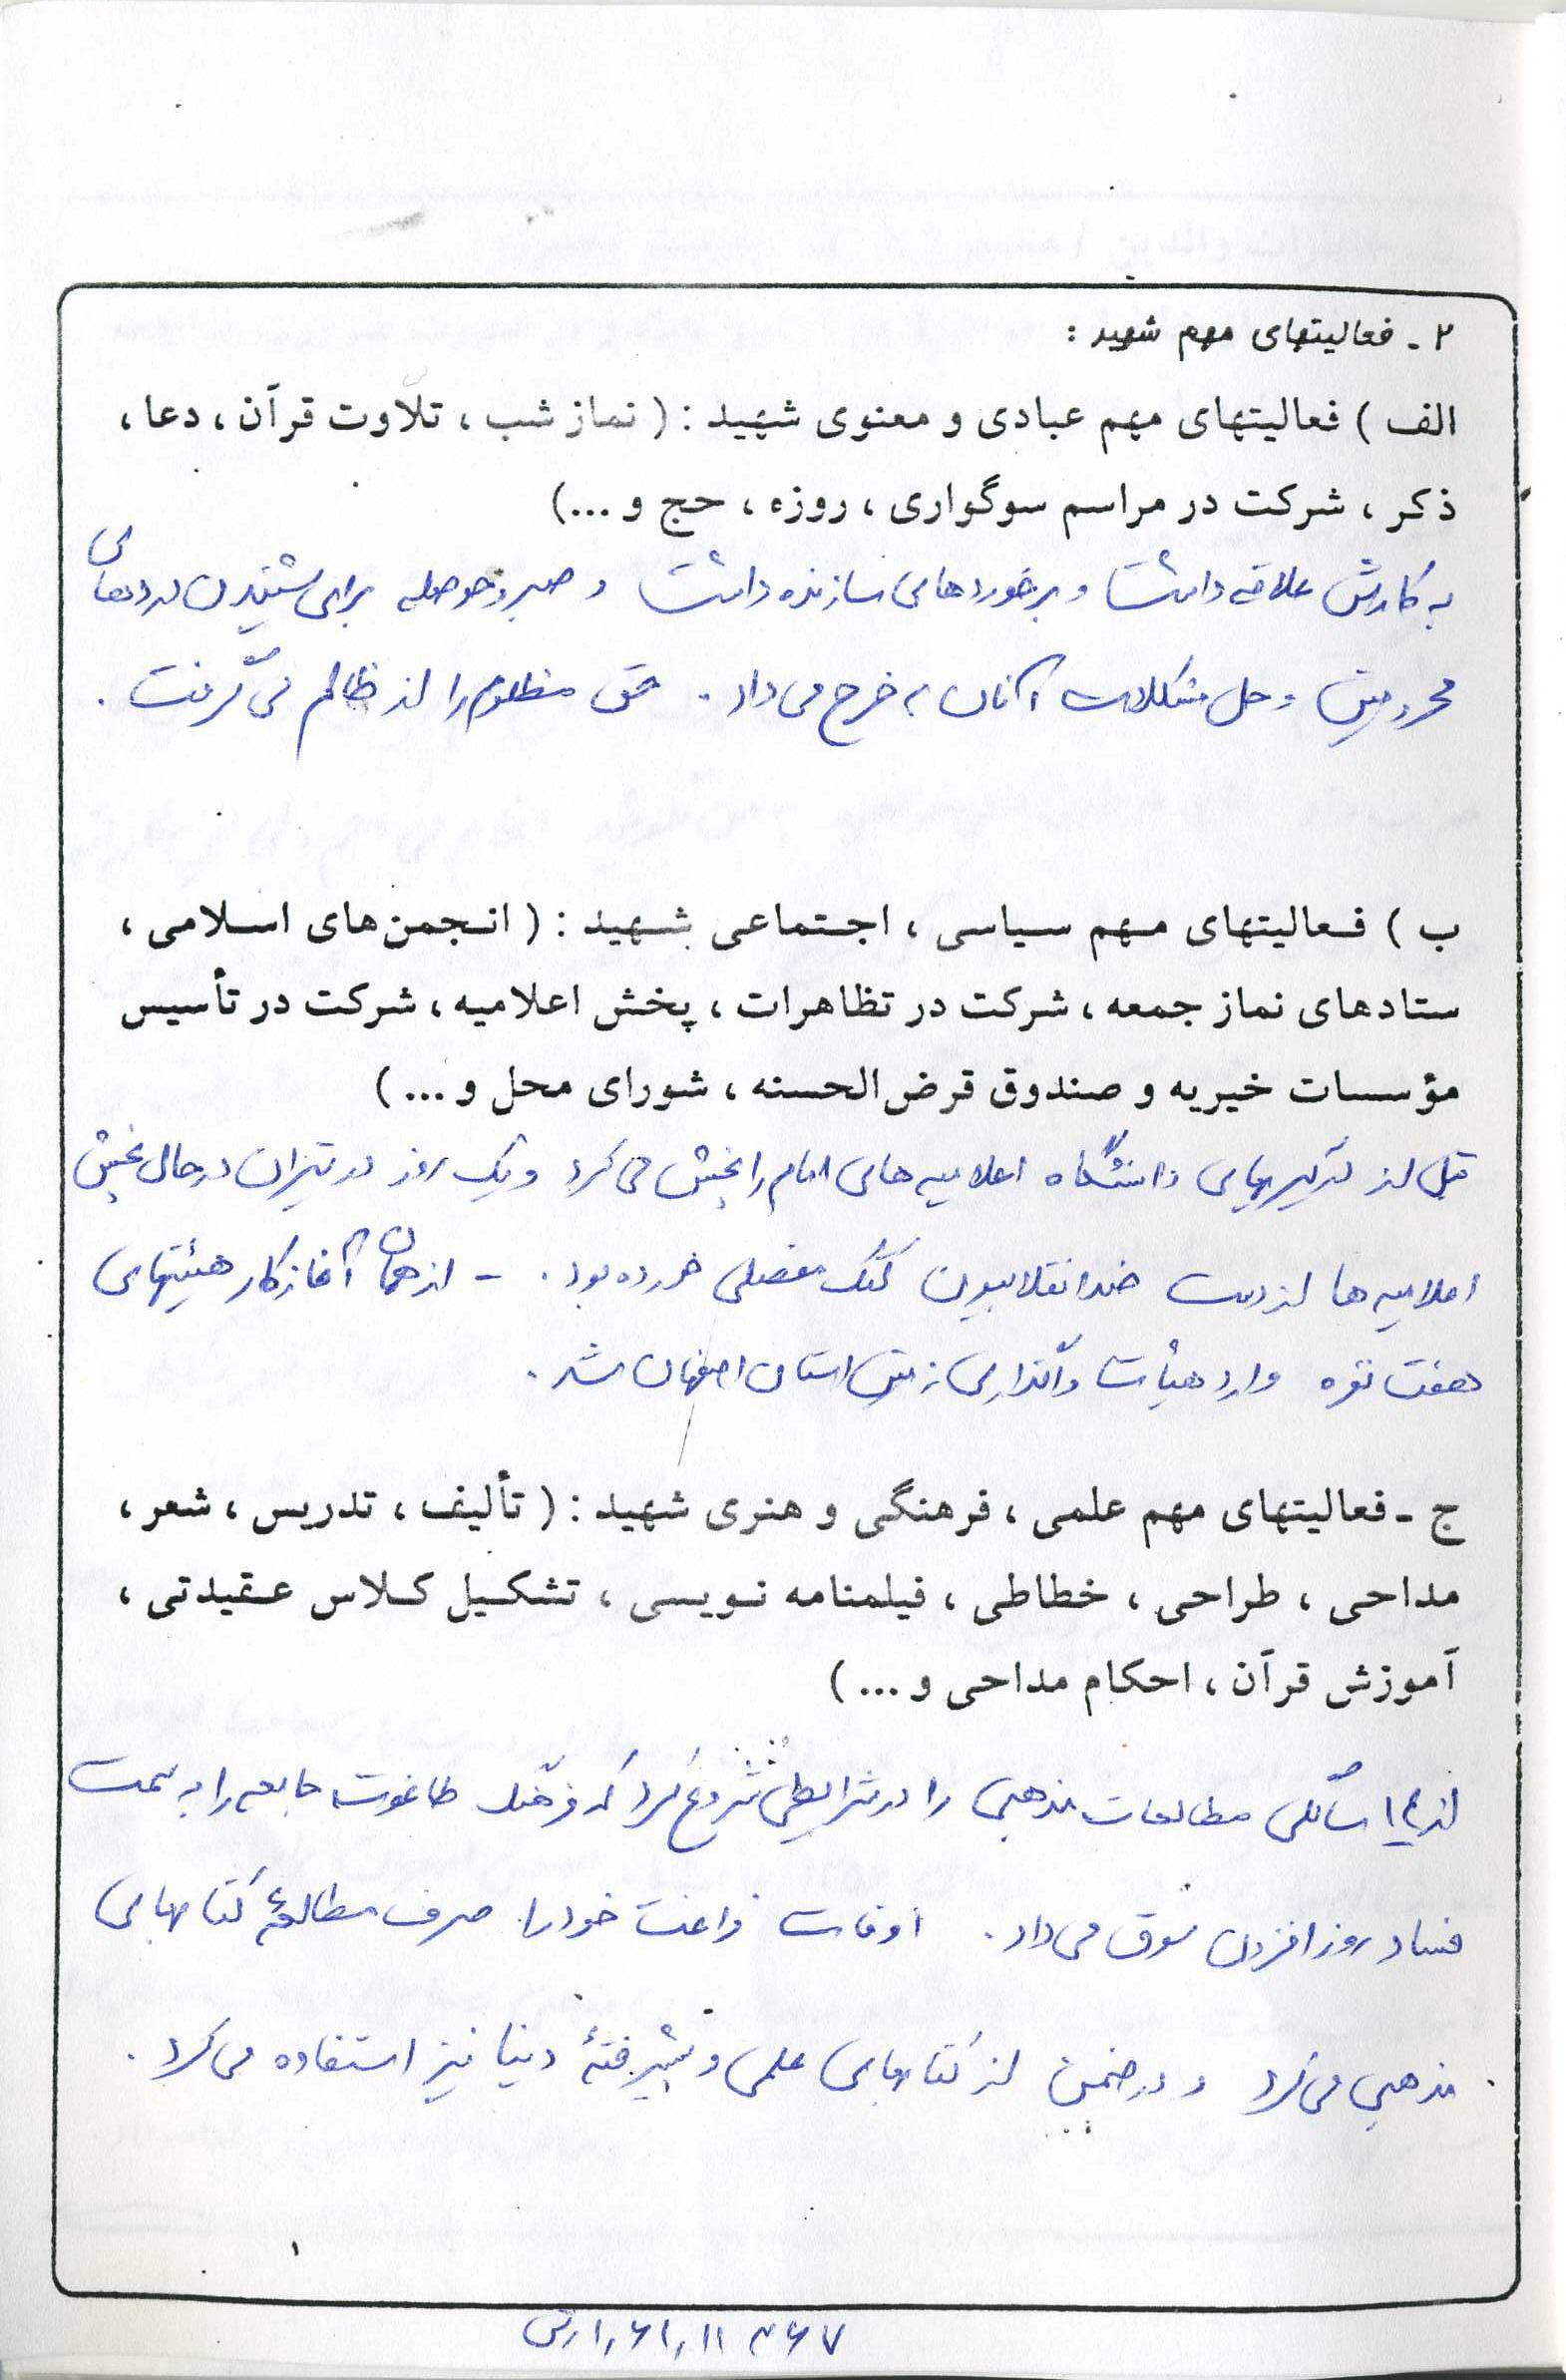 ۲ ـ فعالیتهای مهم شهید :
الف ) فعالیتهای مهم عبادی و معنوی شهید : ( نماز شب ، تلاوت قرآن ، دعا ،
ذکر ، شرکت در مراسم سوگواری ، روزه ، حج و ...)
به کارش علاقه داشت و برخوردهای سازنده داشت و صبر و حوصله برای شنیدن دردهای
محرومین و حل مشکلات آنان به خرج می داد . حق مظلوم را از ظالم می گرفت .
ب ) فعالیتهای مهم سیاسی ، اجتماعی شهید : ( انجمن های اسلامی ،
ستادهای نماز جمعه ، شرکت در تظاهرات ، پخش اعلامیه ، شرکت در تأسیس
مؤسسات خیریه و صندوق قرض الحسنه ، شورای محل و ... )
قبل از درگیریهای دانشگاه اعلامیه های امام را پخش می کرد و یک روز در تهران در حال پخش
اعلامیه ها از دست ضد انقلابیون کتک مفصلی خورده بود . - از همان آغاز کار هیئتهای
هفت نفره وارد هیأت واگذاری زمین استان اصفهان شد .
ج ـ فعالیتهای مهم علمی ، فرهنگی و هنری شهید : ( تألیف ، تدریس ، شعر ،
مداحی ، طراحی ، خطاطی ، فیلمنامه نویسی ، تشکیل کلاس عقیدتی ،
آموزش قرآن ، احکام مداحی و ... )
از سالگی مطالعات مذهبی را در شرایطی شروع کرد که فرهنگ طاغوت جامعه را به سمت
فساد روز افزون سوق می داد . اوقات فراغت خود را صرف مطالعهٔ کتابهای
مذهبی می کرد و در ضمن از کتابهای علمی و پیشرفتهٔ دنیا نیز استفاده می کرد .